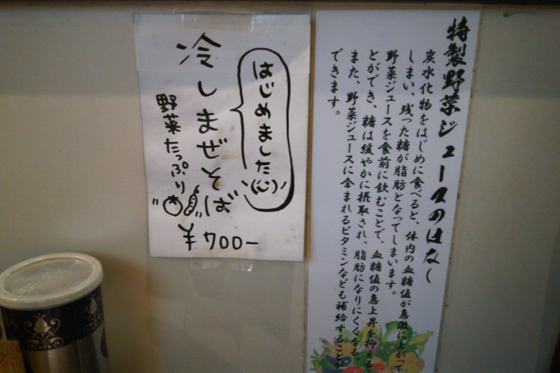 特製野菜ジュースのはなし
炭水化物をはじめに食べると、体内の血糖値が急激に上がって
しまい、残った糖が脂肪となってしまいます。
野菜ジュースを食前に飲むことで、血糖値の急上昇を抑える
とができ、糖は緩やかに摂取され、脂肪になりにくくなる
また、野菜ジュースに含まれるビタミンなども補給すること
できます。
はじめました
冷しまぜそば
野菜たっぷり
¥700-